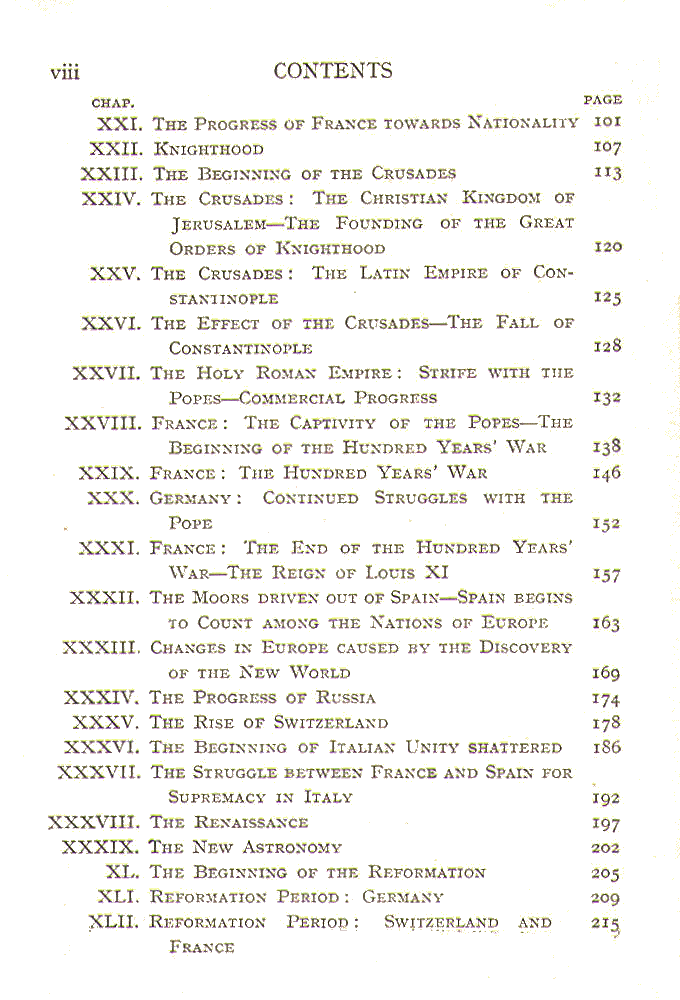 viii CONTENTS
CHAP. PAGE
XXI. THE PROGRESS OF FRANCE TOWARDS NATIONALITY 101
XXII. KNIGHTHOOD 107
XXIII. THE BEGINNING OF THE CRUSADES 113
XXIV. THE CRUSADES: THE CHRISTIAN KINGDOM OF
JERUSALEM—THE FOUNDING OF THE GREAT
ORDERS OF KNIGHTHOOD 120
XXV. THE CRUSADES: THE LATIN EMPIRE OF CON-
STANTINOPLE 125
XXVI. THE EFFECT OF THE CRUSADES—THE FALL OF
CONSTANTINOPLE 128
XXVII. THE HOLY ROMAN EMPIRE: STRIFE WITH THE
POPES—COMMERCIAL PROGRESS 132
XXVIII. FRANCE: THE CAPTIVITY OF THE POPES—THE
BEGINNING OF THE HUNDRED YEARS' WAR 138
XXIX. FRANCE: THE HUNDRED YEARS' WAR 146
XXX. GERMANY: CONTINUED STRUGGLES WITH THE
POPE 152
XXXI. FRANCE: THE END OF THE HUNDRED YEARS'
WAR—THE REIGN OF LOUIS XI 157
XXXII. THE MOORS DRIVEN OUT OF SPAIN—SPAIN BEGINS
TO COUNT AMONG THE NATIONS OF EUROPE 163
XXXIII. CHANGES IN EUROPE CAUSED BY THE DISCOVERY
OF THE NEW WORLD 169
XXXIV. THE PROGRESS OF RUSSIA 174
XXXV. THE RISE OF SWITZERLAND 178
XXXVI. THE BEGINNING OF ITALIAN UNITY SHATTERED 186
XXXVII. THE STRUGGLE BETWEEN FRANCE AND SPAIN FOR
SUPREMACY IN ITALY 192
XXXVIII. THE RENAISSANCE 197
XXXIX. THE NEW ASTRONOMY 202
XL. THE BEGINNING OF THE REFORMATION 205
XLI. REFORMATION PERIOD: GERMANY 209
XLII. REFORMATION PERIOD: SWITZERLAND AND 215
FRANCE